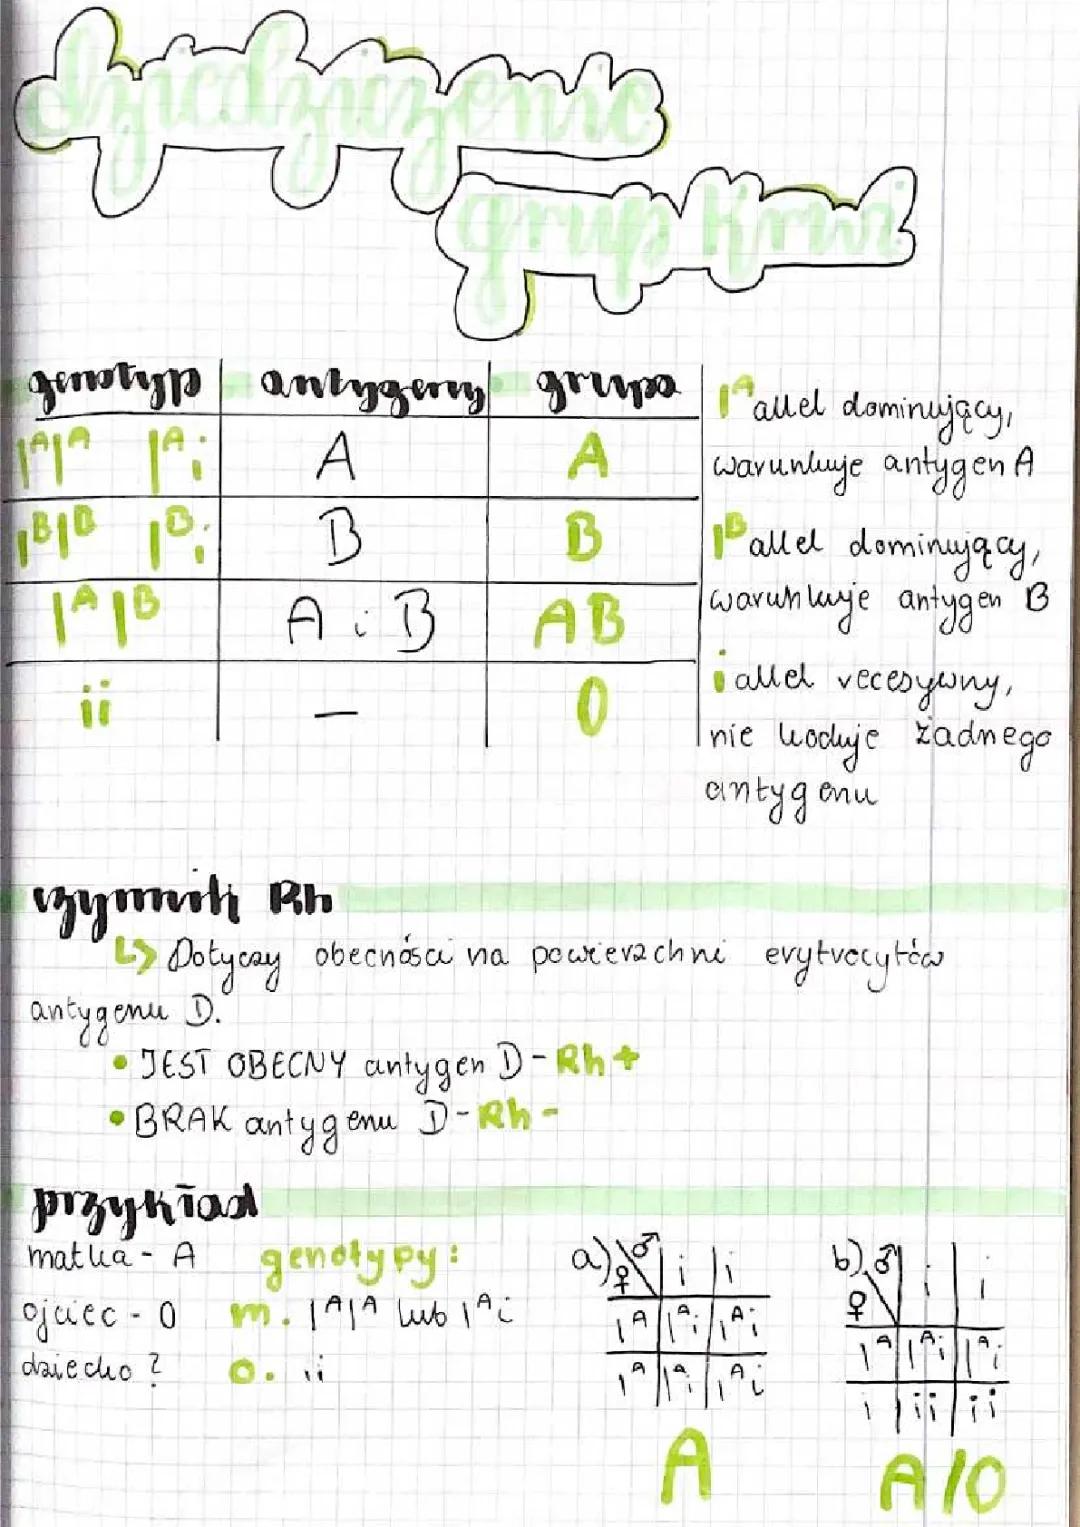 dziedziczenie
grup krwi
genotyp antygeny grupa
IᴬIᴬ Iᴬi A A
IᴮIᴮ Iᴮi B B
IᴬIᴮ A i B AB
ii – 0
Iᴬ allel dominujący,
warunkuje antygen A
Iᴮ allel dominujący,
warunkuje antygen B
i allel recesywny,
nie koduje żadnego
antygenu
czynnik Rh
↳ Dotyczy obecności na powierzchni erytrocytów
antygenu D.
• JEST OBECNY antygen D - Rh +
• BRAK antygenu D - Rh -
przykład
matka - A genotypy:
ojciec - 0 m. IᴬIᴬ lub Iᴬi
dziecko ? o. ii
a) ♀ ♂ i i
Iᴬ Iᴬi Iᴬi
Iᴬ Iᴬi Iᴬi
A
b) ♀ ♂ i i
Iᴬ Iᴬi Iᴬi
i ii ii
A/0